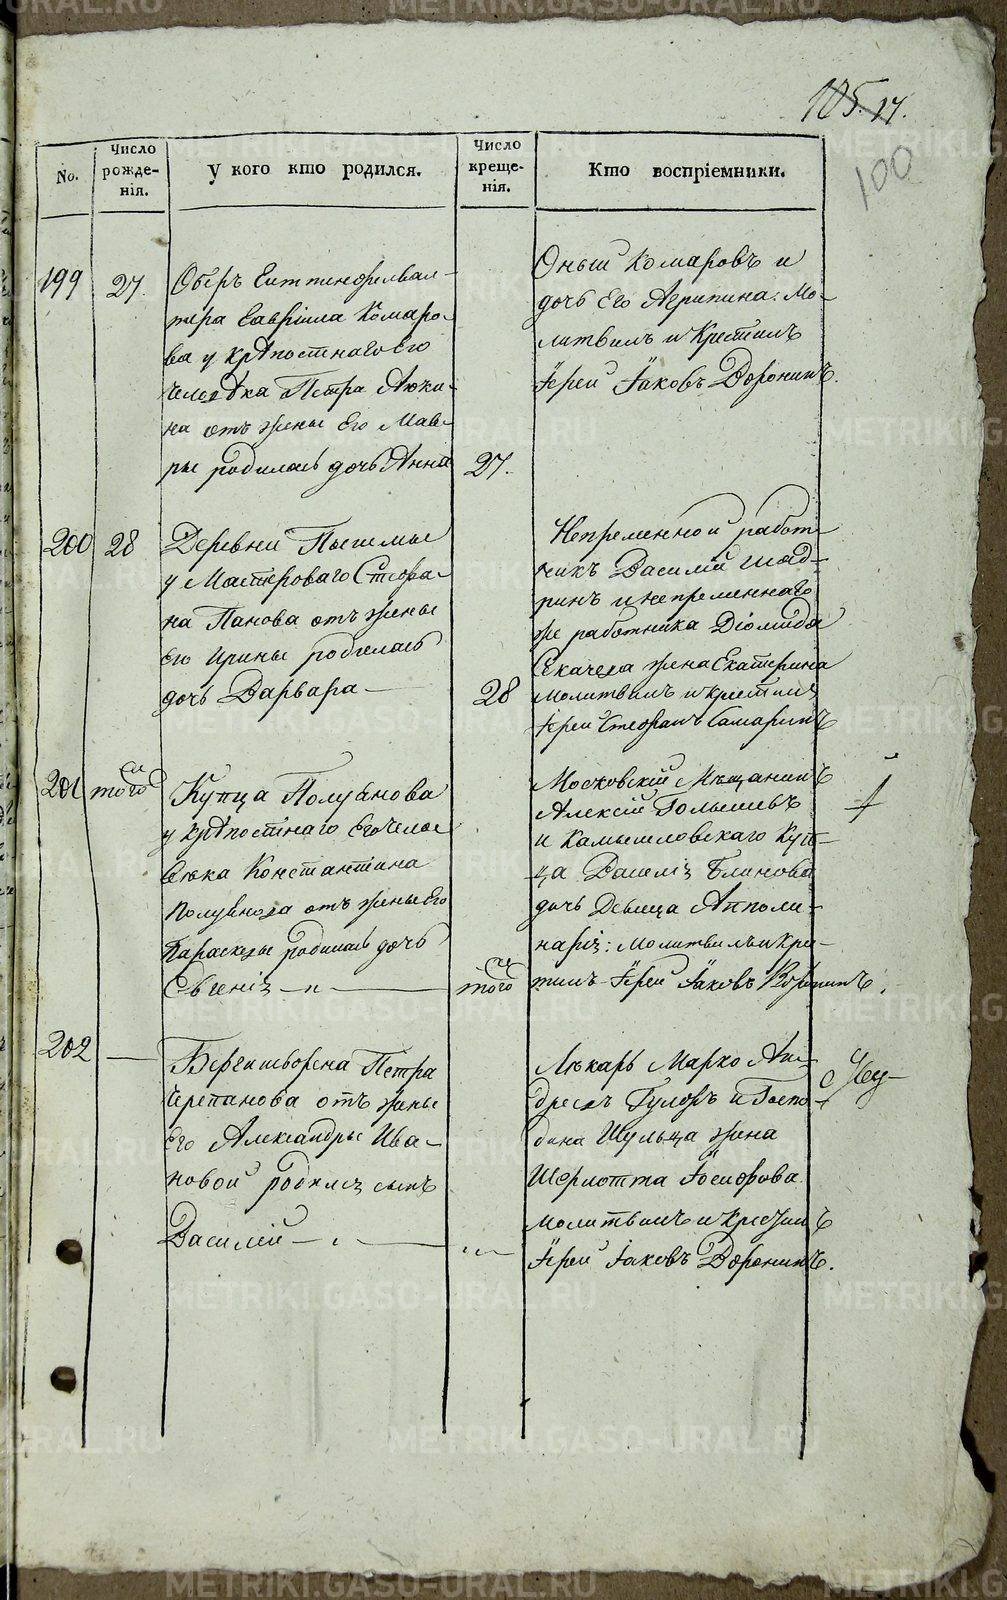 105. 17.
100
No.
Число рожде-нія.
У кого кто родился.
Число креще-нія.
Кто воспріемники.
199
27.
Оберъ Гиттенфервал-
тера Гавріила Комаро-
ва у крѣпостнаго Его
человѣка Петра Аюки-
на отъ жены Его Мав-
ры родилась дочь Анна
27.
Оный Комаровъ и
дочь Его Агрипина: Мо-
литвилъ и Крестилъ
Іерей Іаковъ Воронинъ.
200
28
Деревни Пышмы
у Мастероваго Стефа-
на Панова отъ жены
Его Ирины родилась
дочь Варвара —
28
Непременной работ-
никъ Василій Шад-
ринъ и непременнаго
же работника Діомида
жена Екатерина
молитвилъ и крестилъ
Іерей Стефанъ Самаринъ
201
того
Купца Полуянова
у крѣпостнаго Его чело-
века Константина
Полуянова отъ жены Его
Параскевы родилась дочь
Евгенія — „ —
того
Московскій Мѣщанинъ
Алексій Голышевъ
и Камышловскаго Куп-
ца Василія Блинова
дочь Девица Апполи-
нарія: Молитвилъ и Кре-
тилъ Іерей Іаковъ Воронинъ.
202
—
Бергешворена Петра
Черепанова отъ жены
Его Александры Ива-
новой родился сынъ
Василій — „ —
— „ —
Лѣкарь Марко Ан-
дреевъ и Госпо-
дина Шульца жена
Шерлотта Іосифова
молитвилъ и крестилъ
Іерей Іаковъ Воронинъ.
METRIKI.GASO-URAL.RU